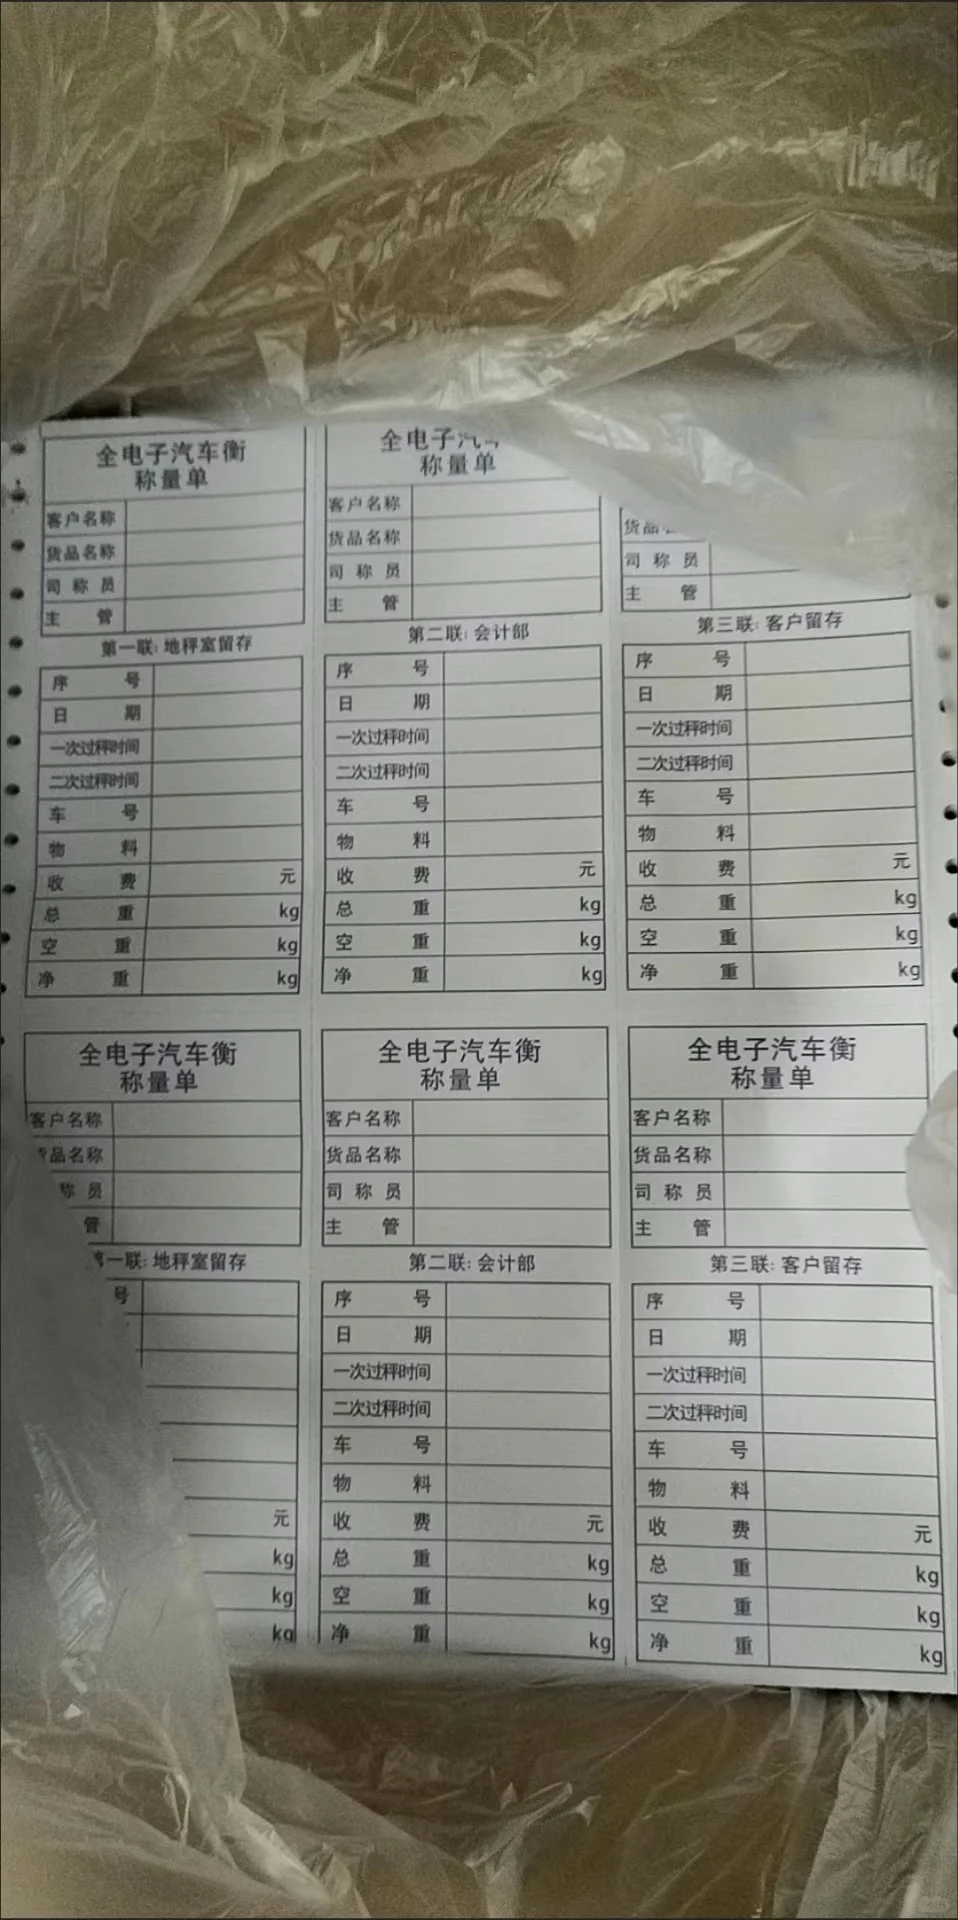 全电子汽车衡
称量单
客户名称
货品名称
司称员
主管
第一联:地秤室留存
序号
日期
一次过秤时间
二次过秤时间
车号
物料
收费 元
总重 kg
空重 kg
净重 kg
全电子汽
称量单
客户名称
货品名称
司称员
主管
第二联:会计部
序号
日期
一次过秤时间
二次过秤时间
车号
物料
收费 元
总重 kg
空重 kg
净重 kg
货品
司称员
主管
第三联:客户留存
序号
日期
一次过秤时间
二次过秤时间
车号
物料
收费 元
总重 kg
空重 kg
净重 kg
全电子汽车衡
称量单
客户名称
品名称
称员
管
一联:地秤室留存
号
元
kg
kg
kg
全电子汽车衡
称量单
客户名称
货品名称
司称员
主管
第二联:会计部
序号
日期
一次过秤时间
二次过秤时间
车号
物料
收费 元
总重 kg
空重 kg
净重 kg
全电子汽车衡
称量单
客户名称
货品名称
司称员
主管
第三联:客户留存
序号
日期
一次过秤时间
二次过秤时间
车号
物料
收费 元
总重 kg
空重 kg
净重 kg